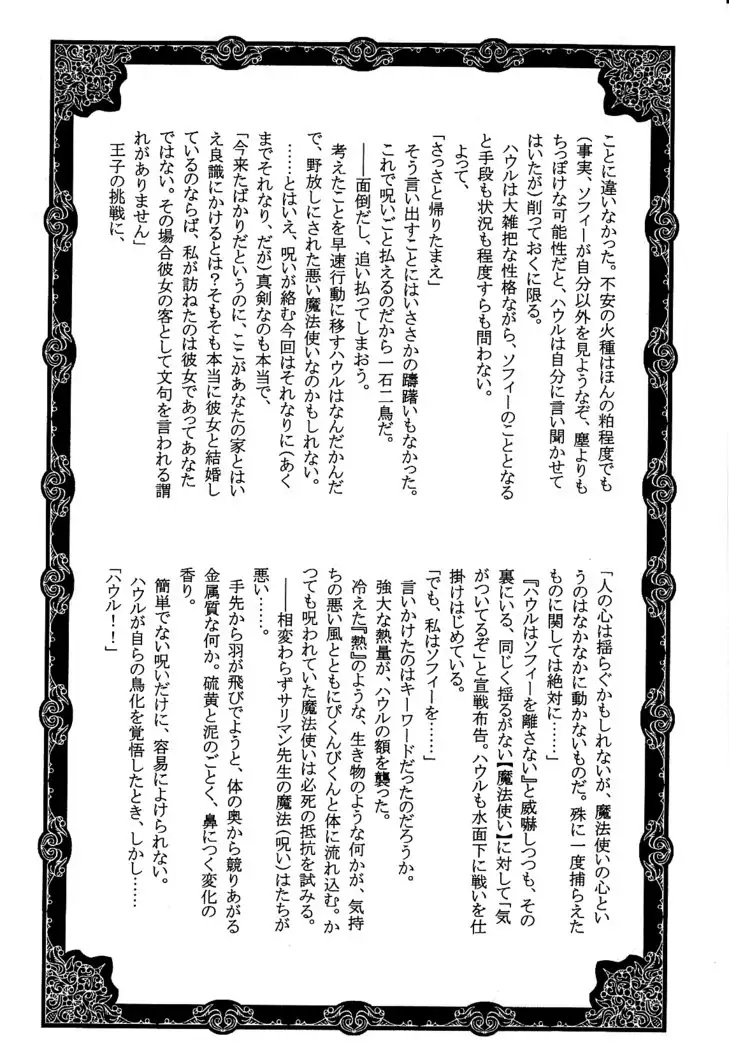 ことに違いなかった。不安の火種はほんの粕程度でも
(事実、ソフィーが自分以外を見ようなぞ、塵よりも
ちっぽけな可能性だと、ハウルは自分に言い聞かせて
はいたが)削っておくに限る。
ハウルは大雑把な性格ながら、ソフィーのこととなる
と手段も状況も程度すらも問わない。
よって、
「さっさと帰りたまえ」
そう言い出すことにはいささかの躊躇いもなかった。
これで呪いごと払えるのだから一石二鳥だ。
――面倒だし、追い払ってしまおう。
考えたことを早速行動に移すハウルはなんだかんだ
で、野放しにされた悪い魔法使いなのかもしれない。
……とはいえ、呪いが絡む今回はそれなりに(あく
までそれなり、だが)真剣なのも本当で、
「今来たばかりだというのに、ここがあなたの家とはい
え良識にかけるとは?そもそも本当に彼女と結婚し
ているのならば、私が訪ねたのは彼女であってあなた
ではない。その場合彼女の客として文句を言われる謂
れがありません」
王子の挑戦に、
「人の心は揺らぐかもしれないが、魔法使いの心とい
うのはなかなかに動かないものだ。殊に一度捕らえた
ものに関しては絶対に……」
『ハウルはソフィーを離さない』と威嚇しつつも、その
裏にいる、同じく揺るがない【魔法使い】に対して「気
がついてるぞ」と宣戦布告。ハウルも水面下に戦いを仕
掛けはじめている。
「でも、私はソフィーを……」
言いかけたのはキーワードだったのだろうか。
強大な熱量が、ハウルの額を襲った。
冷えた『熱』のような、生き物のような何かが、気持
ちの悪い風とともにぴくんぴくんと体に流れ込む。か
つても呪われていた魔法使いは必死の抵抗を試みる。
――相変わらずサリマン先生の魔法(呪い)はたちが
悪い……。
手先から羽が飛びでようと、体の奥から競りあがる
金属質な何か。硫黄と泥のごとく、鼻につく変化の
香り。
簡単でない呪いだけに、容易によけられない。
ハウルが自らの鳥化を覚悟したとき、しかし……
「ハウル!!」